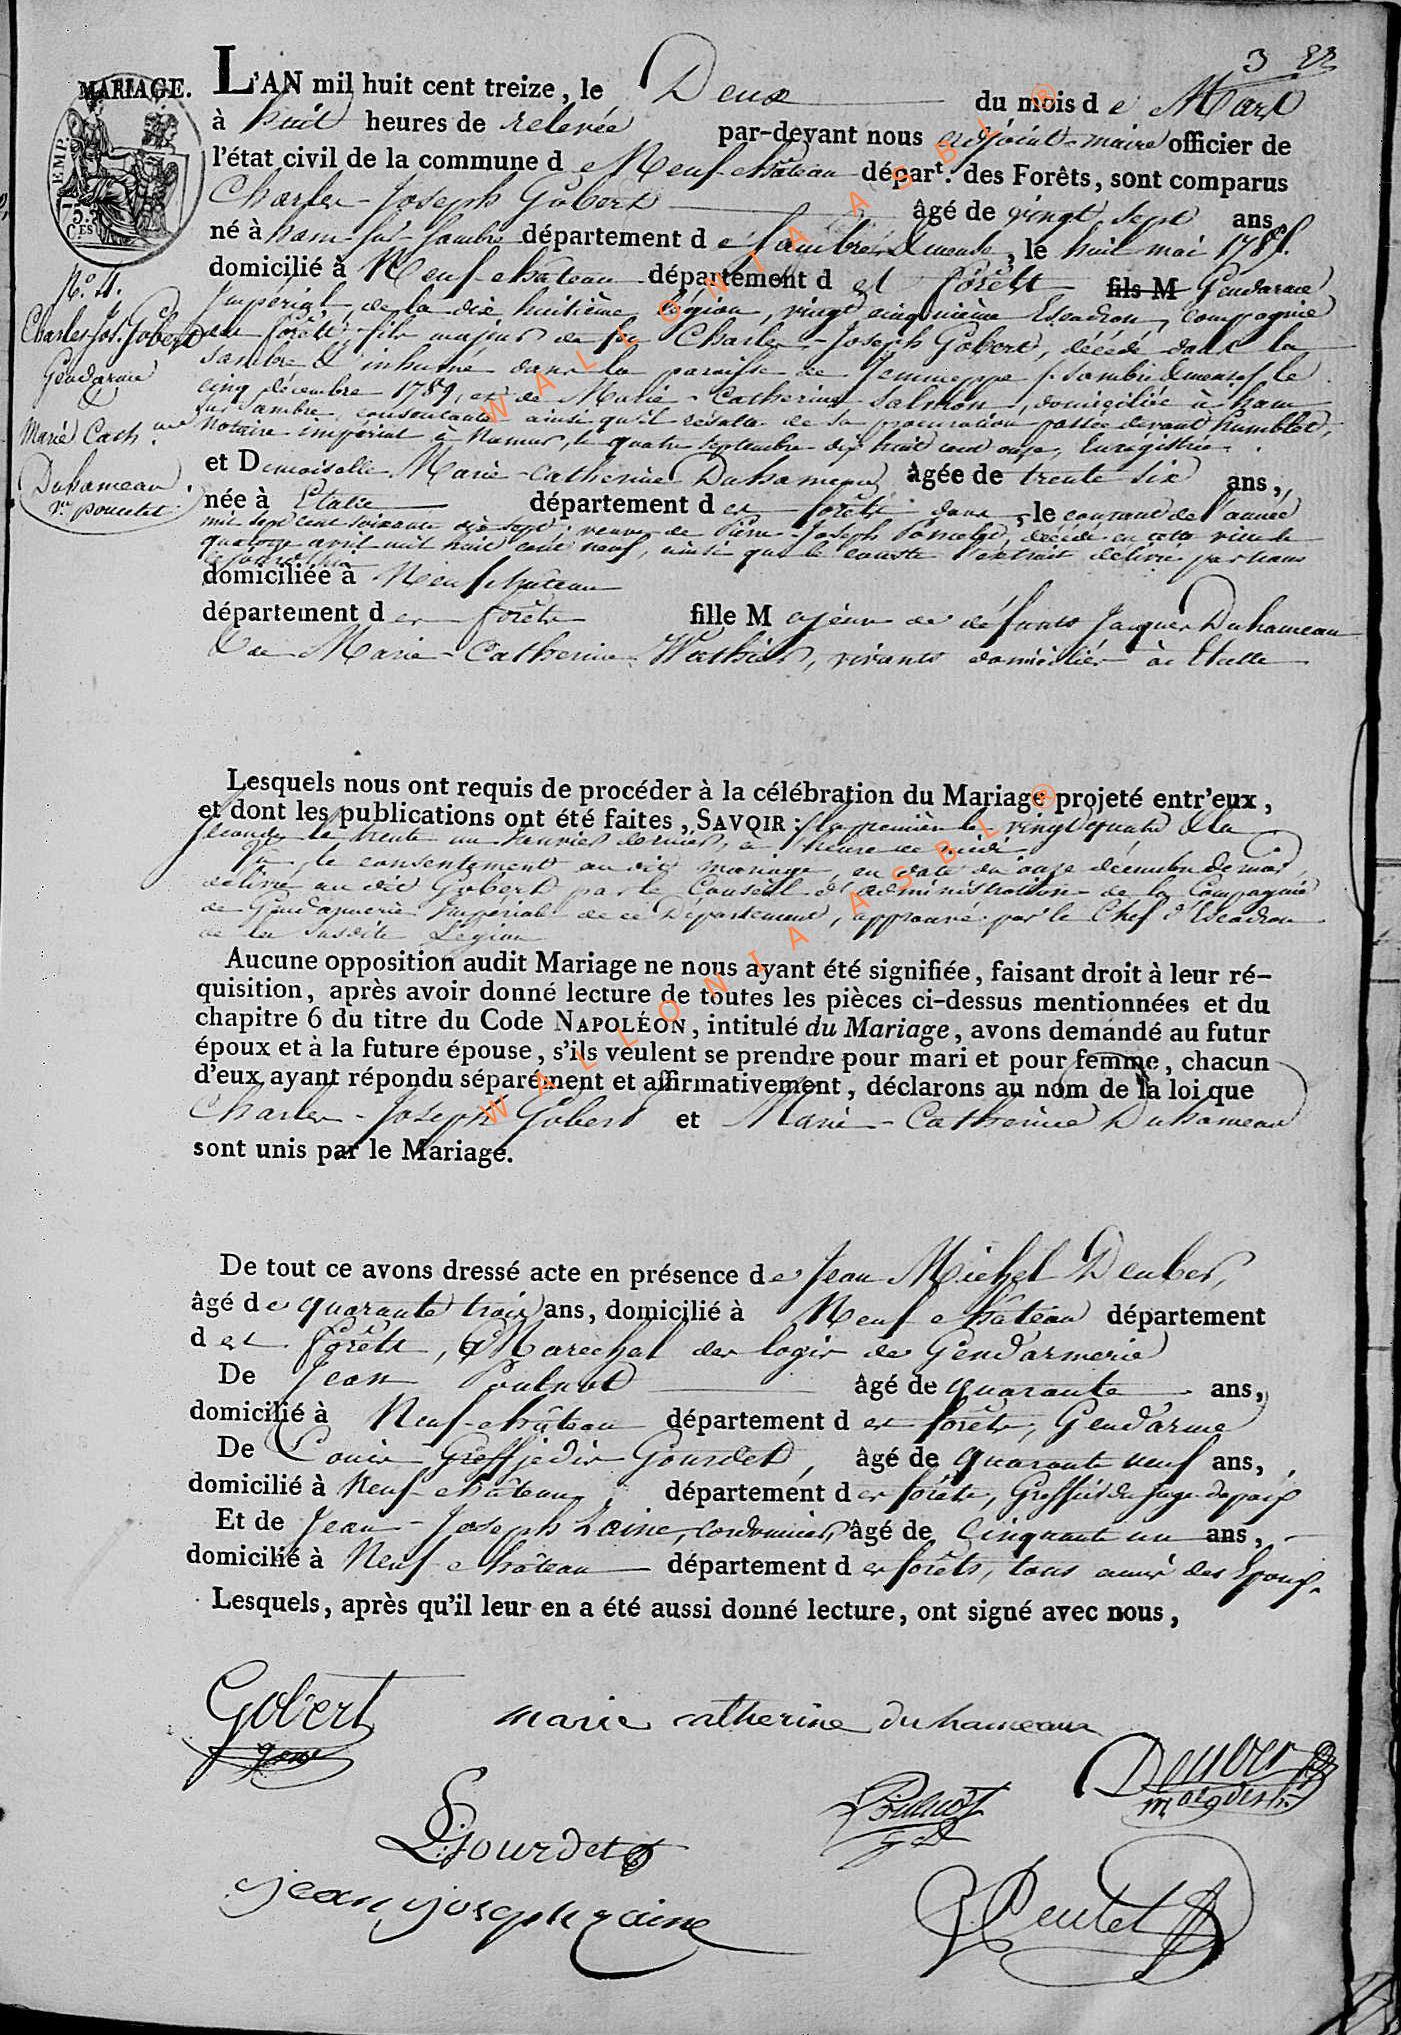 3
MARIAGE.
L'AN mil huit cent treize, le Deux du mois de Mars
à huit heures de relevée par-devant nous adjoint-maire officier de
l'état civil de la commune de Neufchâteau départ. des Forêts, sont comparus
Charles-Joseph Gobert âgé de vingt sept ans
né à ham-sur-sambre département de Sambre & meuse, le huit mai
domicilié à Neufchâteau département des forêts fils M Gendarme
Impérial, de la dix huitième légion, vingt cinquième Escadron, Compagnie
des forêts, fils majeur de feu Charles-Joseph Gobert, décédé dans la
Sambre & inhumé dans la paroisse de Jemmeppe s. sambre & meuse le
cinq décembre 1789, et de Marie-Catherine Salmon, domiciliée à ham
sur sambre, consentante ainsi qu'il résulte de sa procuration passée devant humblet,
Notaire impérial à Namur, le quatre septembre dix huit cent onze, Enregistrée.
et Demoiselle Marie-Catherine Duhameau âgée de trente six ans,
née à Etalle département des forêts dans, le courant de l'année
mil sept cent soixante dix sept; veuve de Pierre-Joseph Poncelet, décédé en cette ville le
quatorze avril mil huit cent neuf, ainsi que le conste l'extrait délivré par nous
domiciliée à Neufchâteau
département des forêts fille Majeure de défunts Jacques Duhameau
& de Marie-Catherine Wathier, vivants domiciliés à Etalle
N.° 4.
Charles Jos. Gobert
Gendarme
&
Marie Cath.ne
Duhameau
v.e poncelet
Lesquels nous ont requis de procéder à la célébration du Mariage projeté entr'eux,
et dont les publications ont été faites, SAVOIR : la première le vingt quatre & la
seconde le trente un Janvier dernier, à l'heure de midi
Vu le consentement au dit mariage, en date du onze décembre dernier,
délivré au dit Gobert par le Conseil d'administration de la Compagnie
de Gendarmerie Impériale de ce Département, approuvé par le Chef d'Escadron
de la susdite Légion
Aucune opposition audit Mariage ne nous ayant été signifiée, faisant droit à leur ré-
quisition, après avoir donné lecture de toutes les pièces ci-dessus mentionnées et du
chapitre 6 du titre du Code NAPOLÉON, intitulé du Mariage, avons demandé au futur
époux et à la future épouse, s'ils veulent se prendre pour mari et pour femme, chacun
d'eux ayant répondu séparément et affirmativement, déclarons au nom de la loi que
Charles-Joseph Gobert et Marie-Catherine Duhameau
sont unis par le Mariage.
De tout ce avons dressé acte en présence de Jean Michel Deuber,
âgé de quarante trois ans, domicilié à Neufchâteau département
des forêts, Maréchal des logis de Gendarmerie
De Jean Poulnot âgé de quarante ans,
domicilié à Neufchâteau département des forêts, Gendarme
De Louis Gourdet, âgé de quarante neuf ans,
domicilié à Neufchâteau département des forêts, Greffier du Juge de paix
Et de Jean-Joseph Zoine, cordonnier, âgé de cinquante un ans,
domicilié à Neufchâteau département des forêts, tous amis des Epoux.
Lesquels, après qu'il leur en a été aussi donné lecture, ont signé avec nous,
Gobert
marie catherine duhameaux
Deuber
Poulnot
Gourdet
jean joseph zoine
EMP.
75
C.ES
WALLONIA ASBL ®
WALLONIA ASBL ®